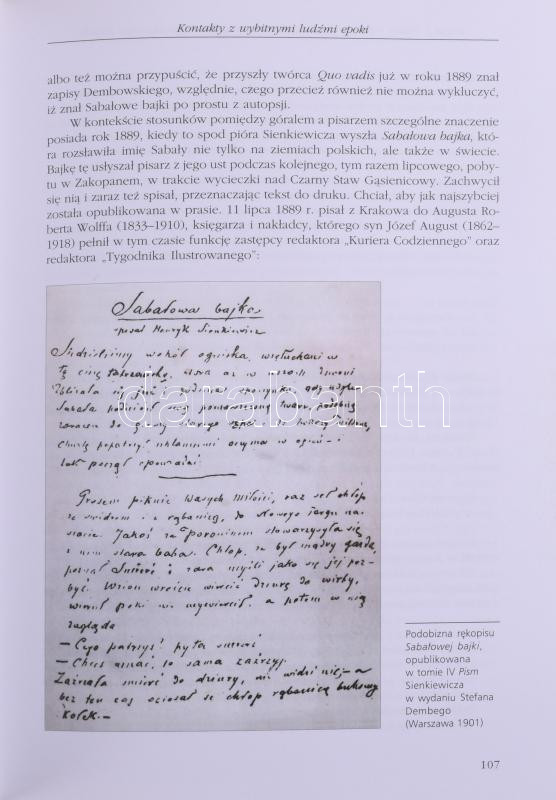 Kontakty z wybitnymi ludźmi epoki
albo też można przypuścić, że przyszły twórca Quo vadis już w roku 1889 znał
zapisy Dembowskiego, względnie, czego przecież również nie można wykluczyć,
iż znał Sabałowe bajki po prostu z autopsji.
W kontekście stosunków pomiędzy góralem a pisarzem szczególne znaczenie
posiada rok 1889, kiedy to spod pióra Sienkiewicza wyszła Sabałowa bajka, któ-
ra rozsławiła imię Sabały nie tylko na ziemiach polskich, ale także w świecie.
Bajkę tę usłyszał pisarz z jego ust podczas kolejnego, tym razem lipcowego, poby-
tu w Zakopanem, w trakcie wycieczki nad Czarny Staw Gąsienicowy. Zachwycił
się nią i zaraz też spisał, przeznaczając tekst do druku. Chciał, aby jak najszybciej
została opublikowana w prasie. 11 lipca 1889 r. pisał z Krakowa do Augusta Ro-
berta Wolffa (1833–1910), księgarza i nakładcy, którego syn Józef August (1862–
1918) pełnił w tym czasie funkcję zastępcy redaktora „Kuriera Codziennego” oraz
redaktora „Tygodnika Ilustrowanego”:
Sabałowa bajka
spisał Henryk Sienkiewicz
Siedzieliśmy wokół ogniska, wsłuchani w
tę ciszę tatrzańską,
Zbierała się już
Sabała podniósł swą pomarszczoną twarz, podobną
do głowy starego
chwilę popatrzył szklannemi oczyma w ogień – i
tak począł opowiadać:
darabanth
Prosem piknie Wasych Miłości, raz seł chłop
ze świdrem i z rąbanicą, do Nowego Targu na
Jakoś za Poroninem stowarzysyła się
z nim stara baba. Chłop, ze był mądry gazda,
poznał Śmierć i zara myśli jako się jej poz-
być. Wzion wreście wiercić dziurę do wirby,
wiercił póki nie wywiercił, a potem w nią
zagląda
– Cego patrzys? pyta śmierć
– Chces znać, to sama zaźrzyj.
Zaźrała śmierć do dziury, nie widzi nic, – a
bez ten cas ociosał se chłop rąbanicą bukowy
kołek. –
Podobizna rękopisu
Sabałowej bajki,
opublikowana
w tomie IV Pism
Sienkiewicza
w wydaniu Stefana
Dembego
(Warszawa 1901)
107